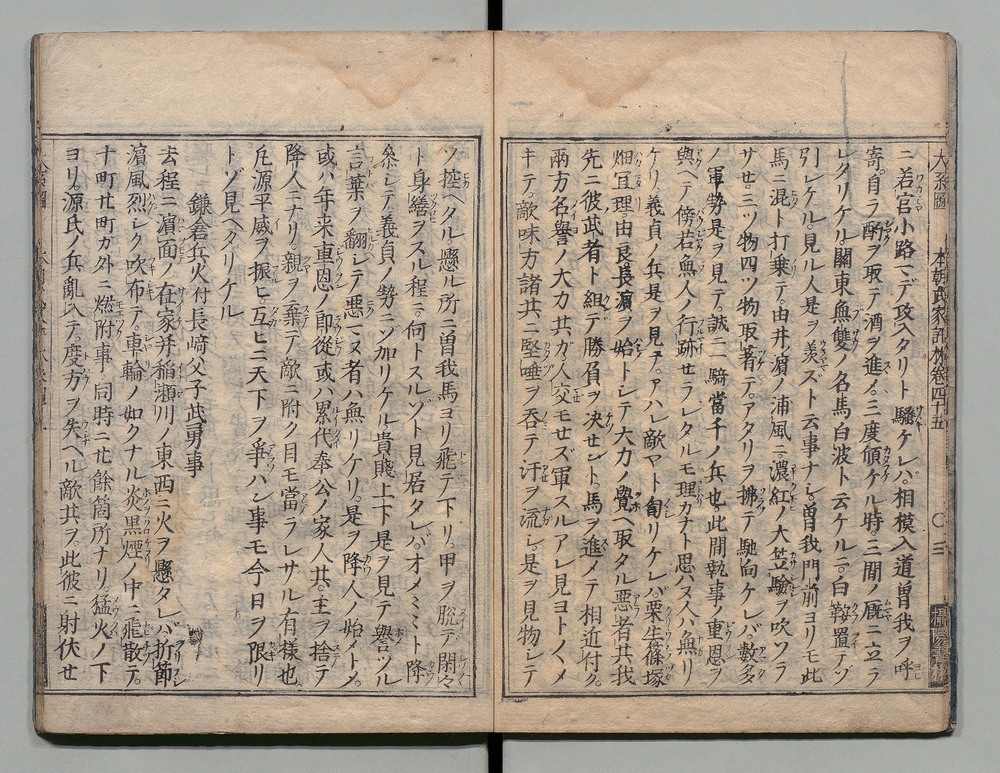 ニ若宮小路マデ攻入タリト騒ケレバ。相模入道曽我ヲ呼
寄。自ラ酌ヲ取テ酒ヲ進。三度傾ケル時。三間ノ厩ニ立ラ
レタリケル。關東無雙ノ名馬白波ト云ケルニ。白鞍置テゾ
引レケル。見ル人是ヲ羨ズト云事ナシ。曽我門前ヨリモ此
馬ニ混ト打乗テ。由井濱ノ浦風ニ濃紅ノ大笠驗ヲ吹ソラ
サセ。三ツ物四ツ物取著テ。アタリヲ拂テ馳向ケレバ。數多
ノ軍勢是ヲ見テ。誠ニ一騎當千ノ兵也。此間執事ノ重恩ヲ
與ヘテ傍若無人ノ行跡セラレタルモ理カナト思ハヌ人ハ無リ
ケリ。義貞ノ兵是ヲ見テ。アハレ敵ヤト匐リケレバ。栗生篠塚
畑冝理。由良長濱ヲ始トシテ大力ノ覺ヘ取タル悪者共。我
先ニ彼武者ト組デ勝負ヲ决セント。馬ヲ進メテ相近付ク。
兩方名譽ノ大力共ガ人交モセズ軍スルアレ見ヨトノヽメ
キテ。敵味方諸共ニ堅唾ヲ呑テ汗ヲ流シ。是ヲ見物シテ
大系圖 本朝武家評林卷四十五 〇三
ゾ控ヘタル。懸ル所ニ曽我馬ヨリ飛テ下リ。甲ヲ脱テ閑々
ト身繕ヲスル程ニ。何トスルゾト見居タレバ。オメミミト降
參シテ。義貞ノ勢ニゾ加リケル。貴賤上下是ヲ見テ譽ツル
言葉ヲ翻シテ悪マヌ者ハ無リケリ。是ヲ降人ノ始トメ。
或ハ年来重恩ノ郎從或ハ累代奉公ノ家人共。主ヲ捨テ
降人ニナリ。親ヲ棄テ敵ニ附ク目モ當ラレサル有樣也。
凡源平威ヲ振ヒ互ヒニ天下ヲ爭ハン事モ今日ヲ限リ
トゾ見ヘタリケル
鎌倉兵火付長﨑父子武勇事
去程ニ濵面ノ在家并稲瀬川ノ東西ニ火ヲ懸タレバ。折節
濵風烈シク吹布テ。車輪ノ如クナル炎黒煙ノ中ニ飛散テ。
十町廿町ガ外ニ燃附事。同時ニ廿餘箇所ナリ。猛火ノ下
ヨリ。源氏ノ兵亂入テ。度方ヲ失ヘル敵共ヲ。此彼ニ射伏セ